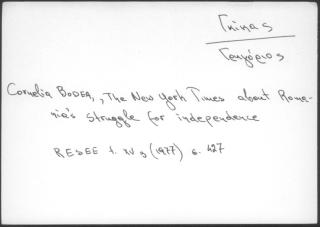 Γκίκας
Γρηγόριος
Cornelia BODEA, „The New York Times about Roma-
nia's struggle for independence
RESEE t. XV 3 (1977) σ. 427